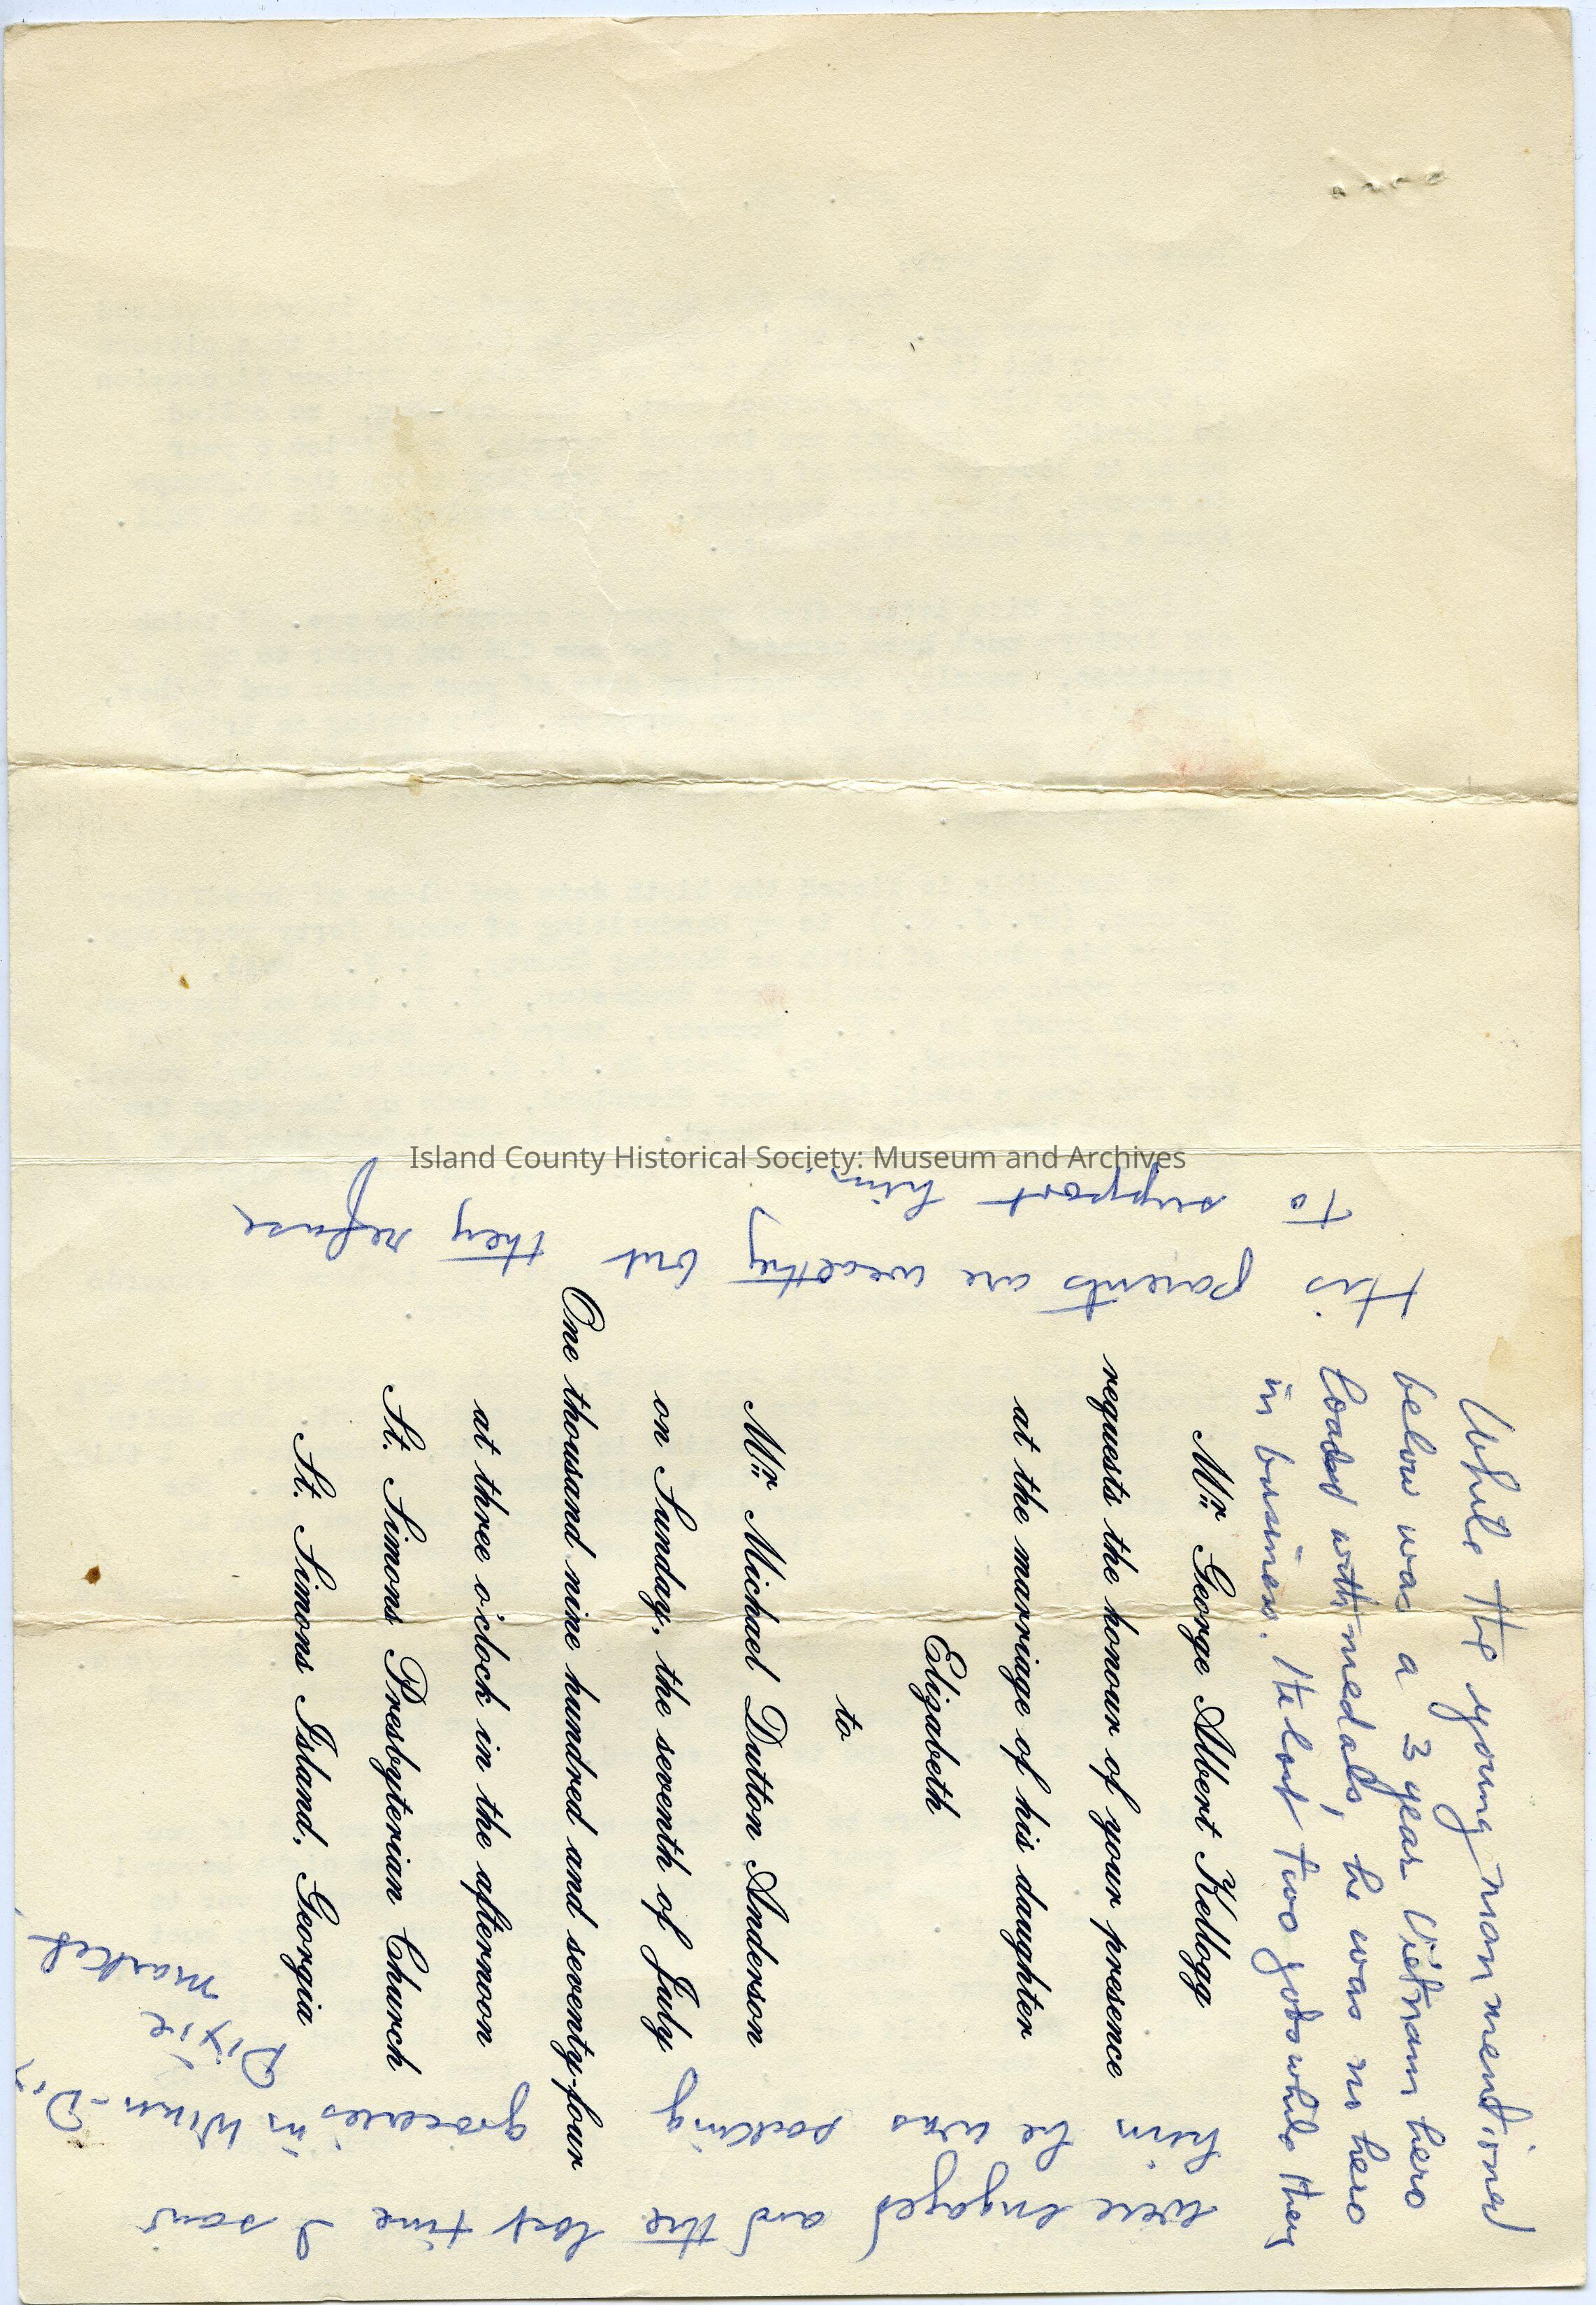 While the young man mentioned
below was a 3 year Vietnam hero
loaded with medals, he was no hero
in business. He lost two jobs while they
were engaged and the last time I saw
him he was sacking groceries in Winn-Dix
Dixie
market
His parents are wealthy but they refuse
to support him
Mr. George Albert Kellogg
requests the honour of your presence
at the marriage of his daughter
Elizabeth
to
Mr. Michael Dutton Anderson
on Sunday, the seventh of July
One thousand nine hundred and seventy-four
at three o'clock in the afternoon
St. Simons Presbyterian Church
St. Simons Island, Georgia
Island County Historical Society: Museum and Archives